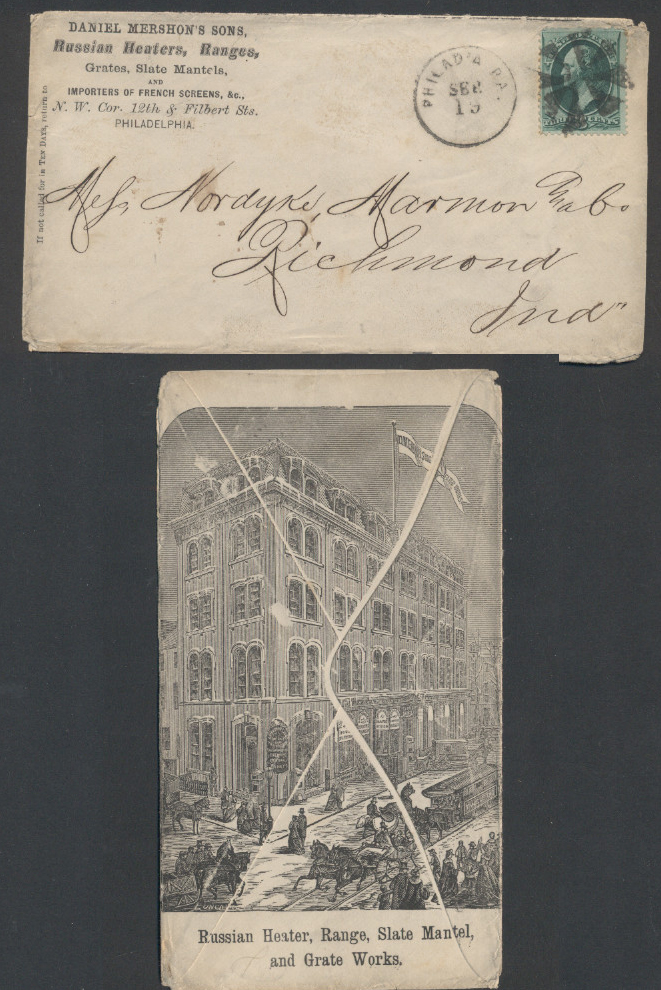 DANIEL MERSHON'S SONS,
Russian Heaters, Ranges,
Grates, Slate Mantels,
AND
IMPORTERS OF FRENCH SCREENS, &c.,
N. W. Cor. 12th & Filbert Sts.
PHILADELPHIA.
If not called for in TEN DAYS, return to
PHILAD'A PA.
SEP
19
Mess Nordyke, Marmon & Co
Richmond
Ind
Russian Heater, Range, Slate Mantel,
and Grate Works.